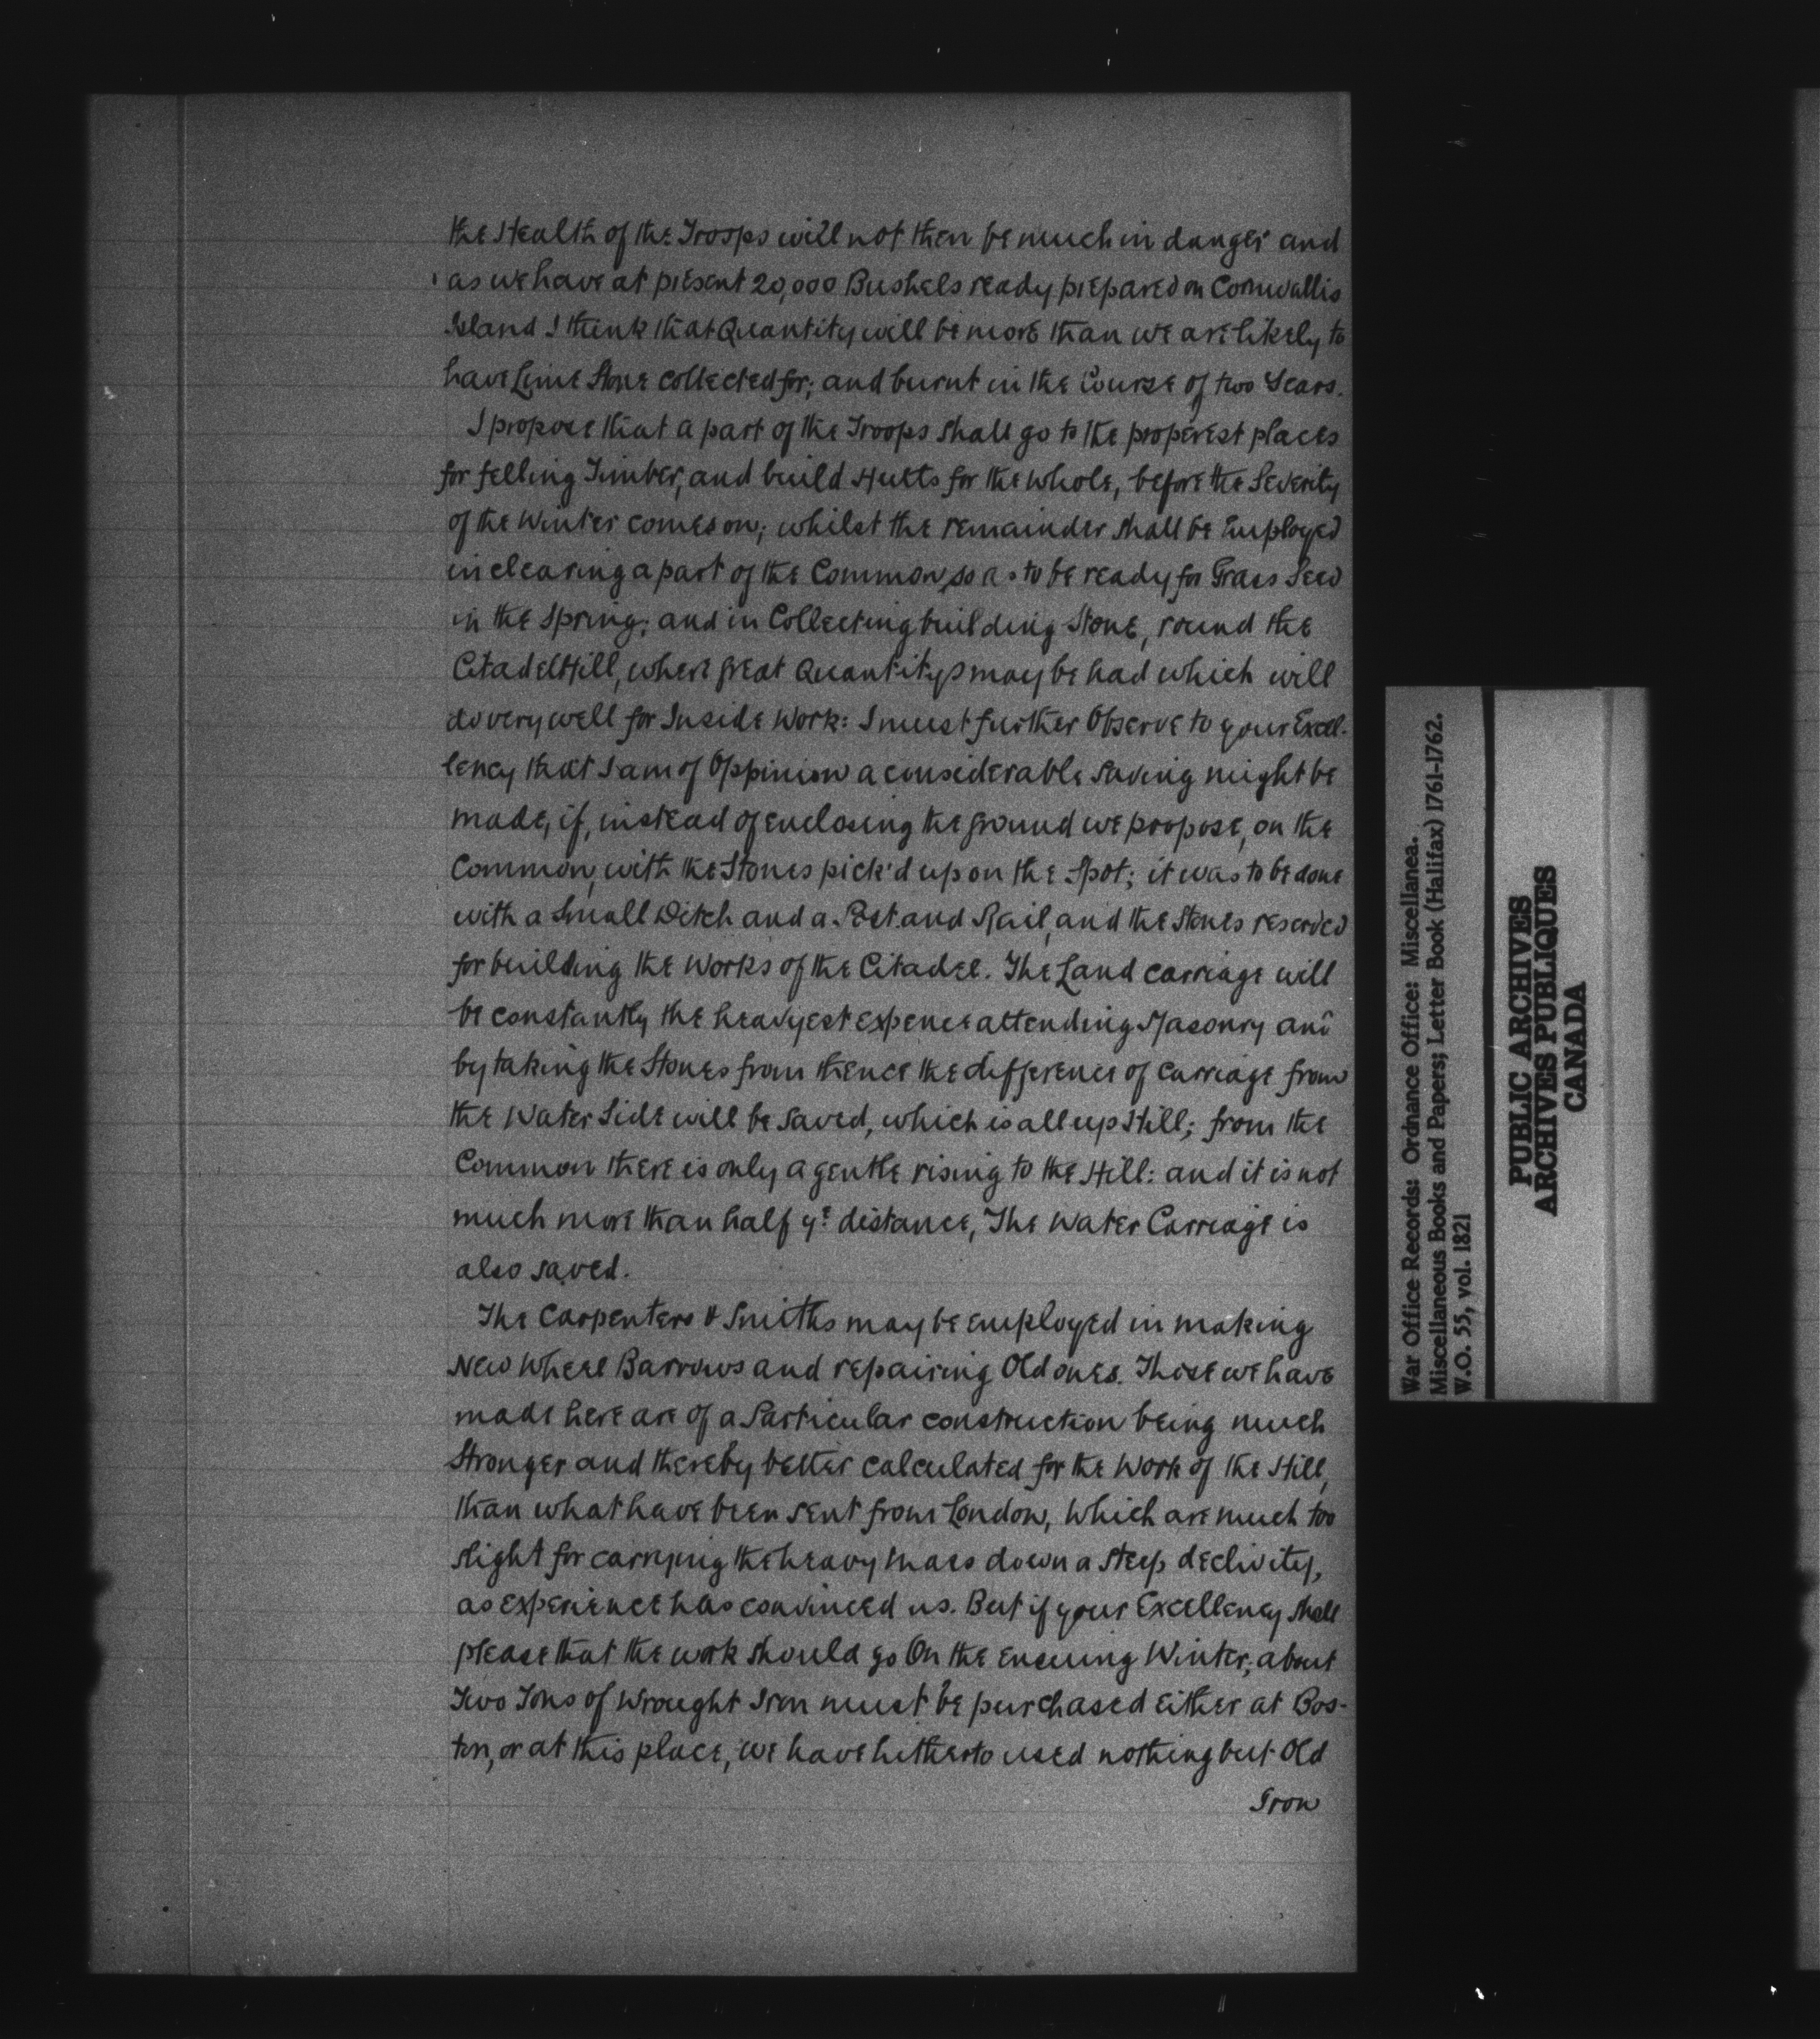 the Health of the Troops will not then be much in danger and
as we have at present 20,000 Bushels ready prepared on Cornwallis
Island I think that Quantity will be more than we are likely to
have Lime Stone collected for; and burnt in the Course of two Years.
I propose that a part of the Troops shall go to the properest places
for felling Timber, and build Hutts for the whole, before the Severity
of the Winter comes on; whilst the remainder shall be Employed
in clearing a part of the Common, so as to be ready for Grass Seed
in the Spring; and in Collecting building Stone, round the
Citadel Hill, where great Quantitys may be had which will
do very well for Inside Work: I must further Observe to your Excel-
lency that I am of Oppinion a considerable saving might be
made, if, instead of enclosing the ground we propose, on the
Common, with the Stones pick'd up on the Spot; it was to be done
with a Small Ditch and a Post and Rail, and the Stones reserved
for building the Works of the Citadel. The Land carriage will
be constantly the heavyest expence attending Masonry and
by taking the Stones from thence the difference of Carriage from
the Water Side will be saved, which is all up Hill; from the
Common there is only a gentle rising to the Hill: and it is not
much more than half yᵉ distance, The Water Carriage is
also saved.
The Carpenters & Smiths may be employed in making
New Wheel Barrows and repairing Old ones. Those we have
made here are of a Particular construction being much
Stronger and thereby better calculated for the Work of the Hill,
than what have been sent from London, which are much too
slight for carrying the heavy mass down a steep declivity,
as experience has convinced us. But if your Excellency shall
please that the work should go On the ensuing Winter; about
Two Tons of Wrought Iron must be purchased either at Bos-
ton, or at this place, we have hitherto used nothing but Old
Iron
War Office Records: Ordnance Office: Miscellanea.
Miscellaneous Books and Papers; Letter Book (Halifax) 1761-1762.
W.O. 55, vol. 1821
PUBLIC ARCHIVES
ARCHIVES PUBLIQUES
CANADA